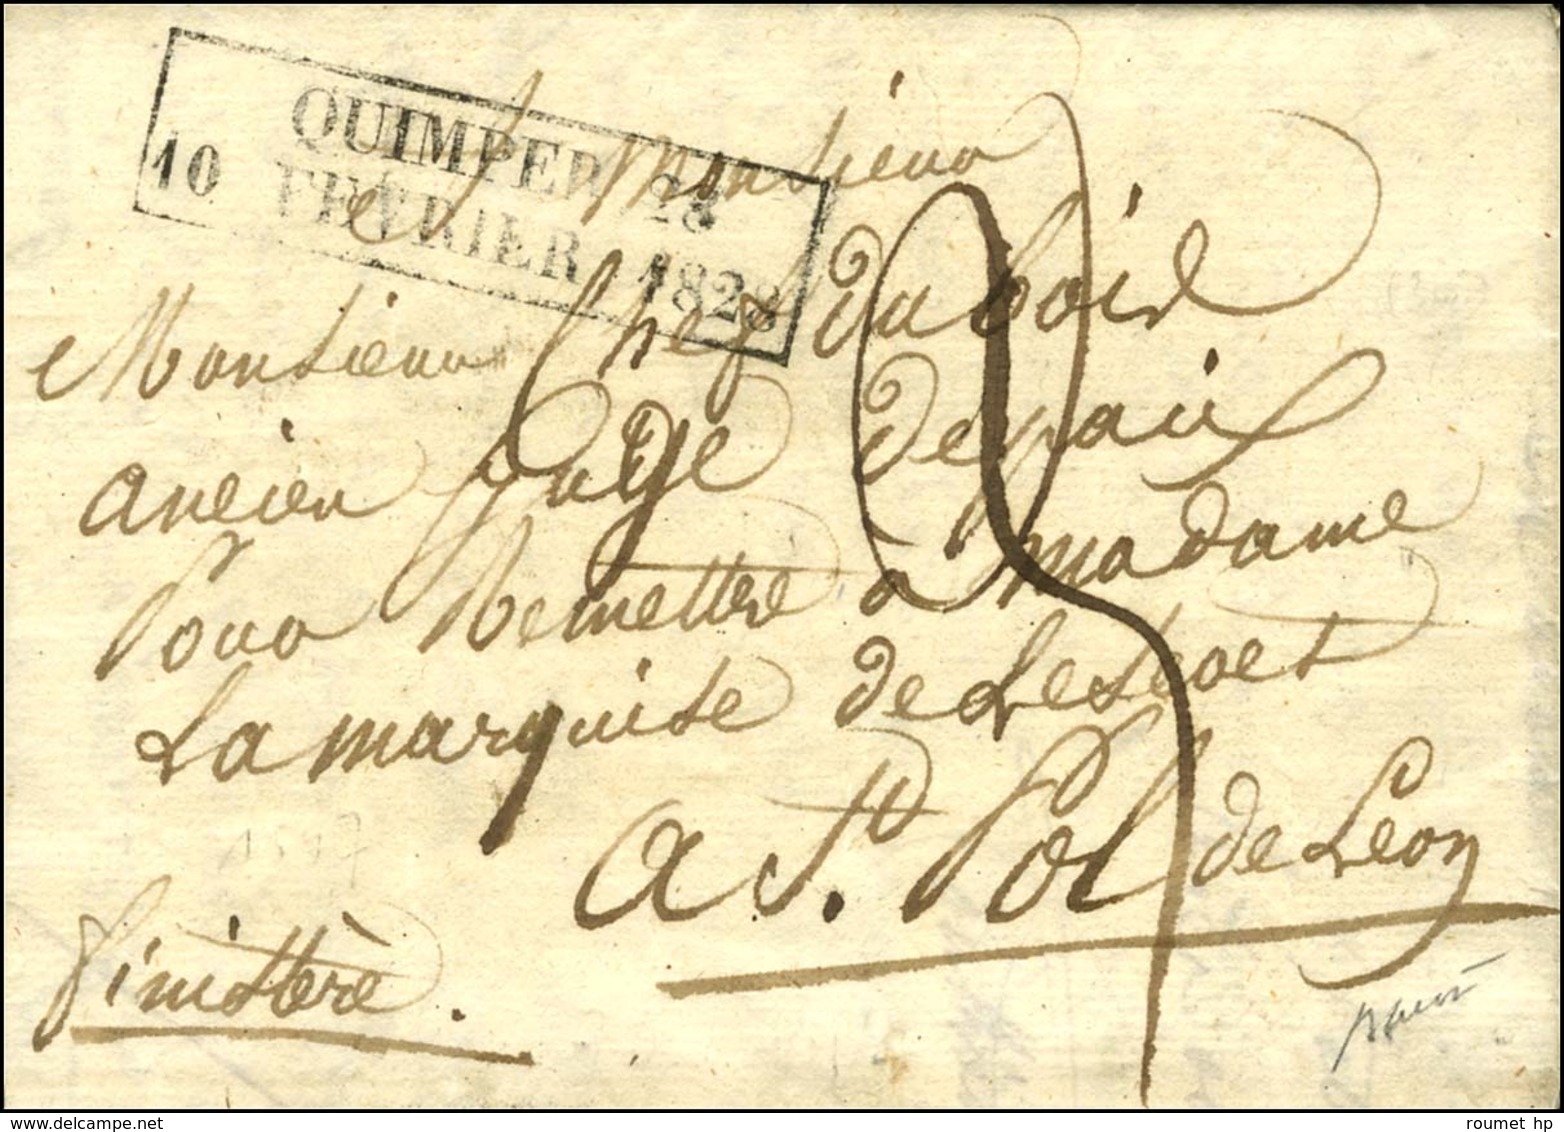 QUIMPER 28
10 FÉVRIER 1828
A Monsieur
Monsieur Chef du bois
ancien Juge de paix
Pour Remettre à Madame
La marquise de Lescoet
a St. Pol de Léon
finistère.
roumet hp